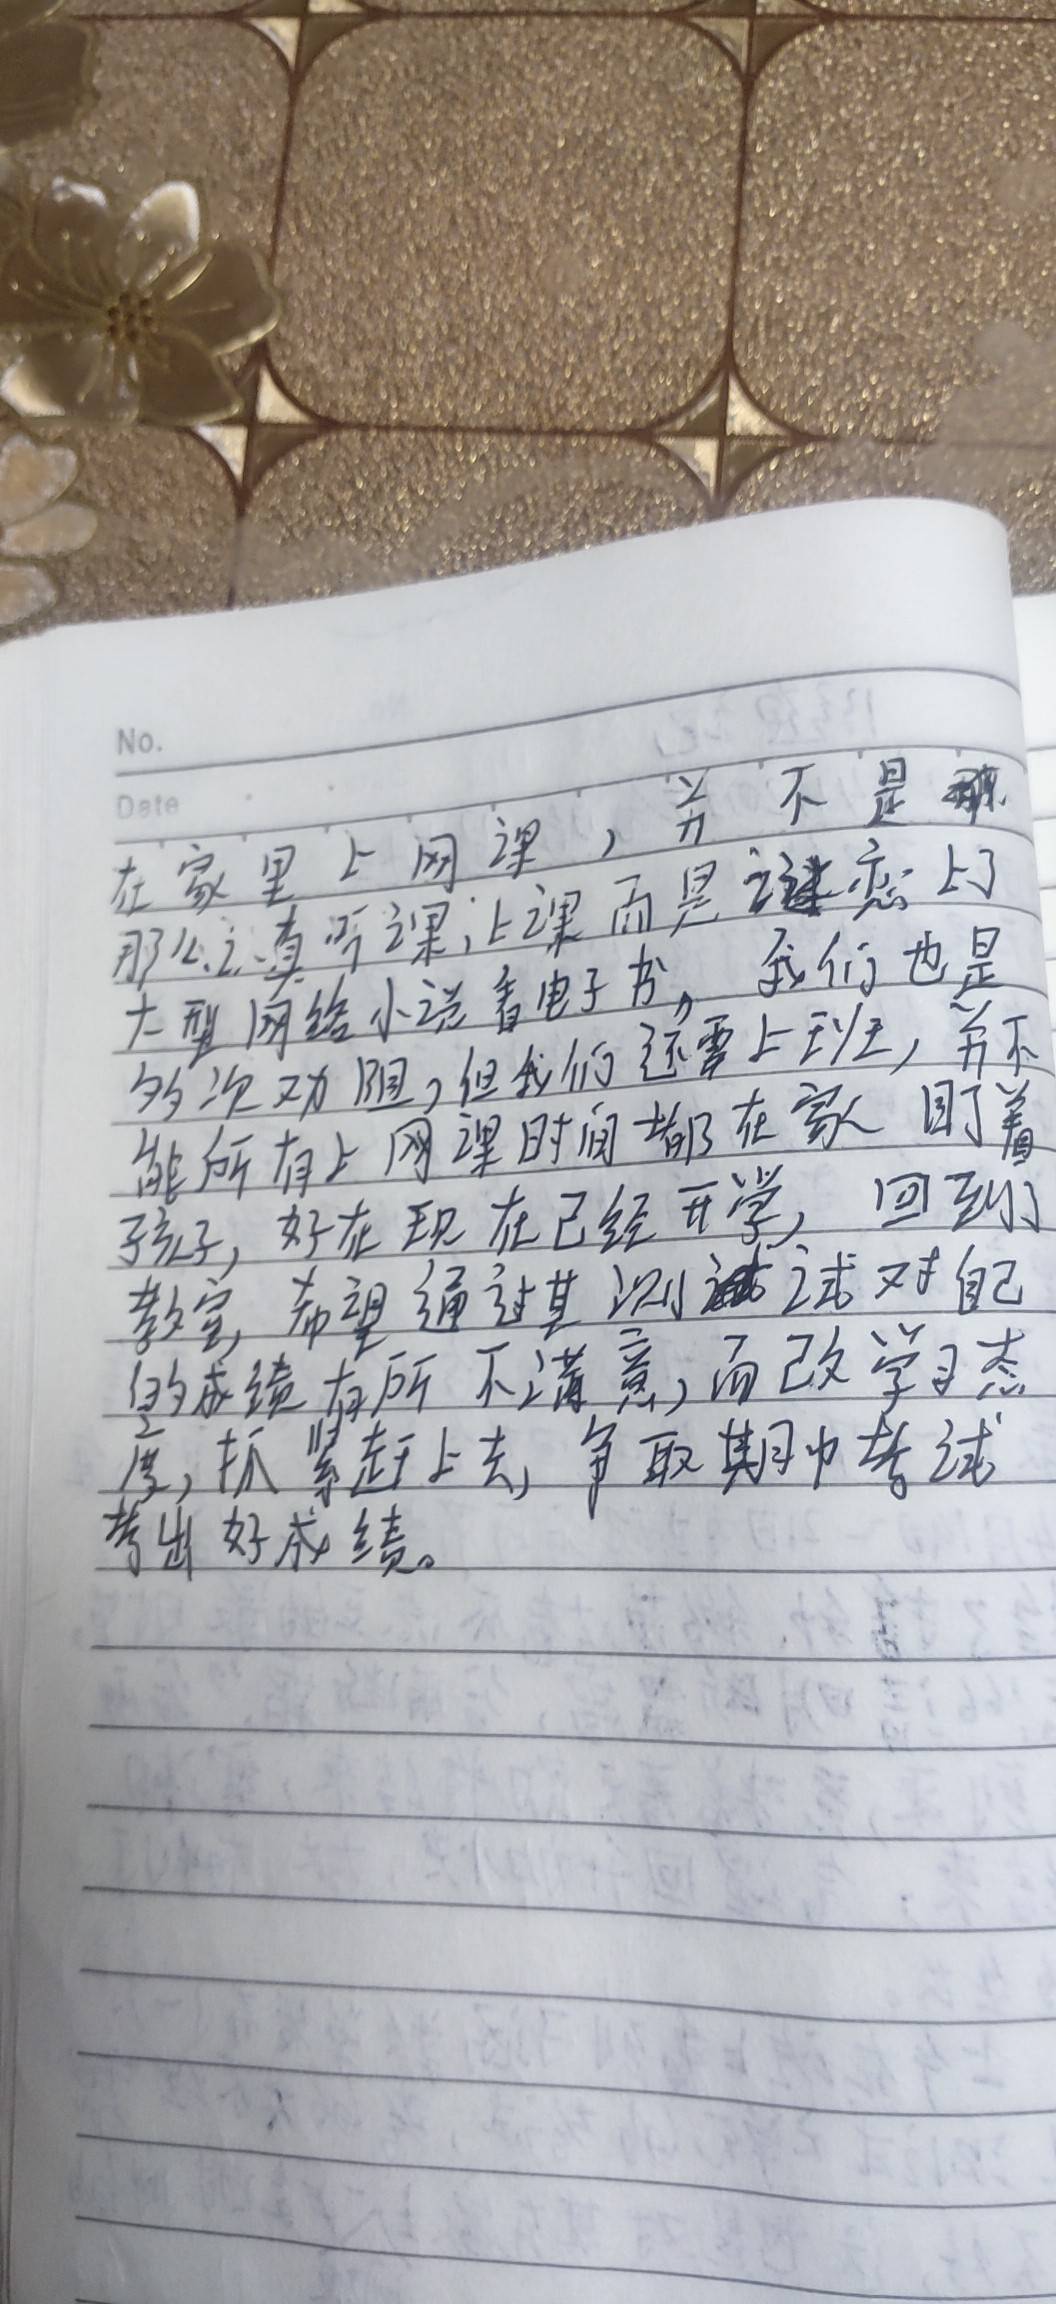 No.
Date
在家里上网课，并不是
那么认真听课,上课而是迷恋上了
大型网络小说看电子书，我们也是
多次劝阻，但我们还要上班，并不
能所有上网课时间都在家盯着
孩子，好在现在已经开学，回到了
教室，希望通过其测试对自己
的成绩有所不满意，而改学习态
度，抓紧赶上去，争取期中考试
考出好成绩。